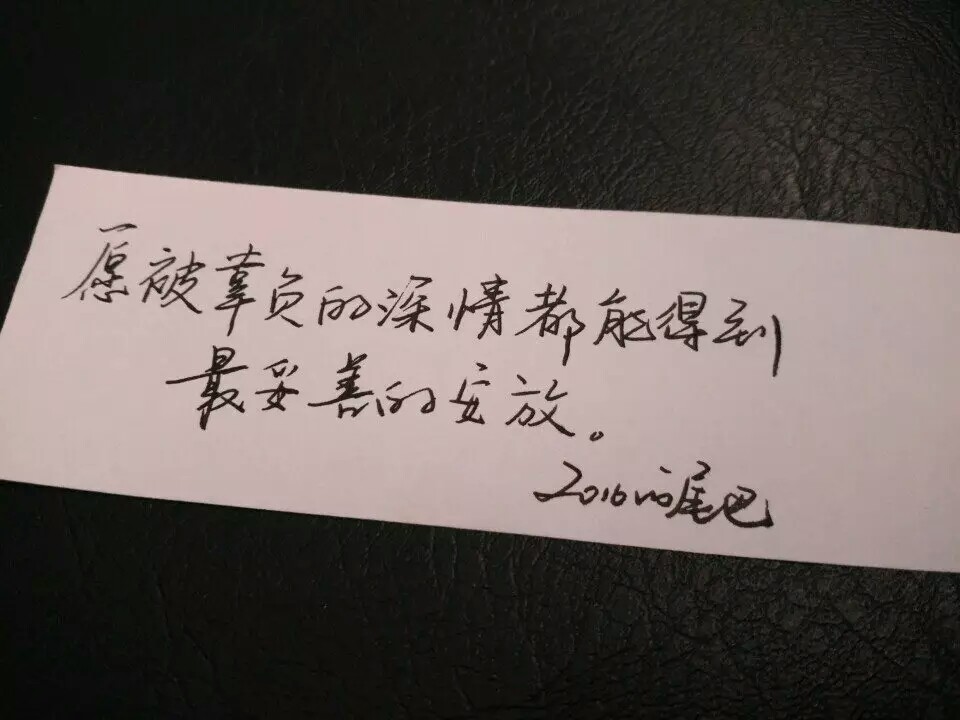 愿被辜负的深情都能得到
最妥善的安放。
2016的尾巴